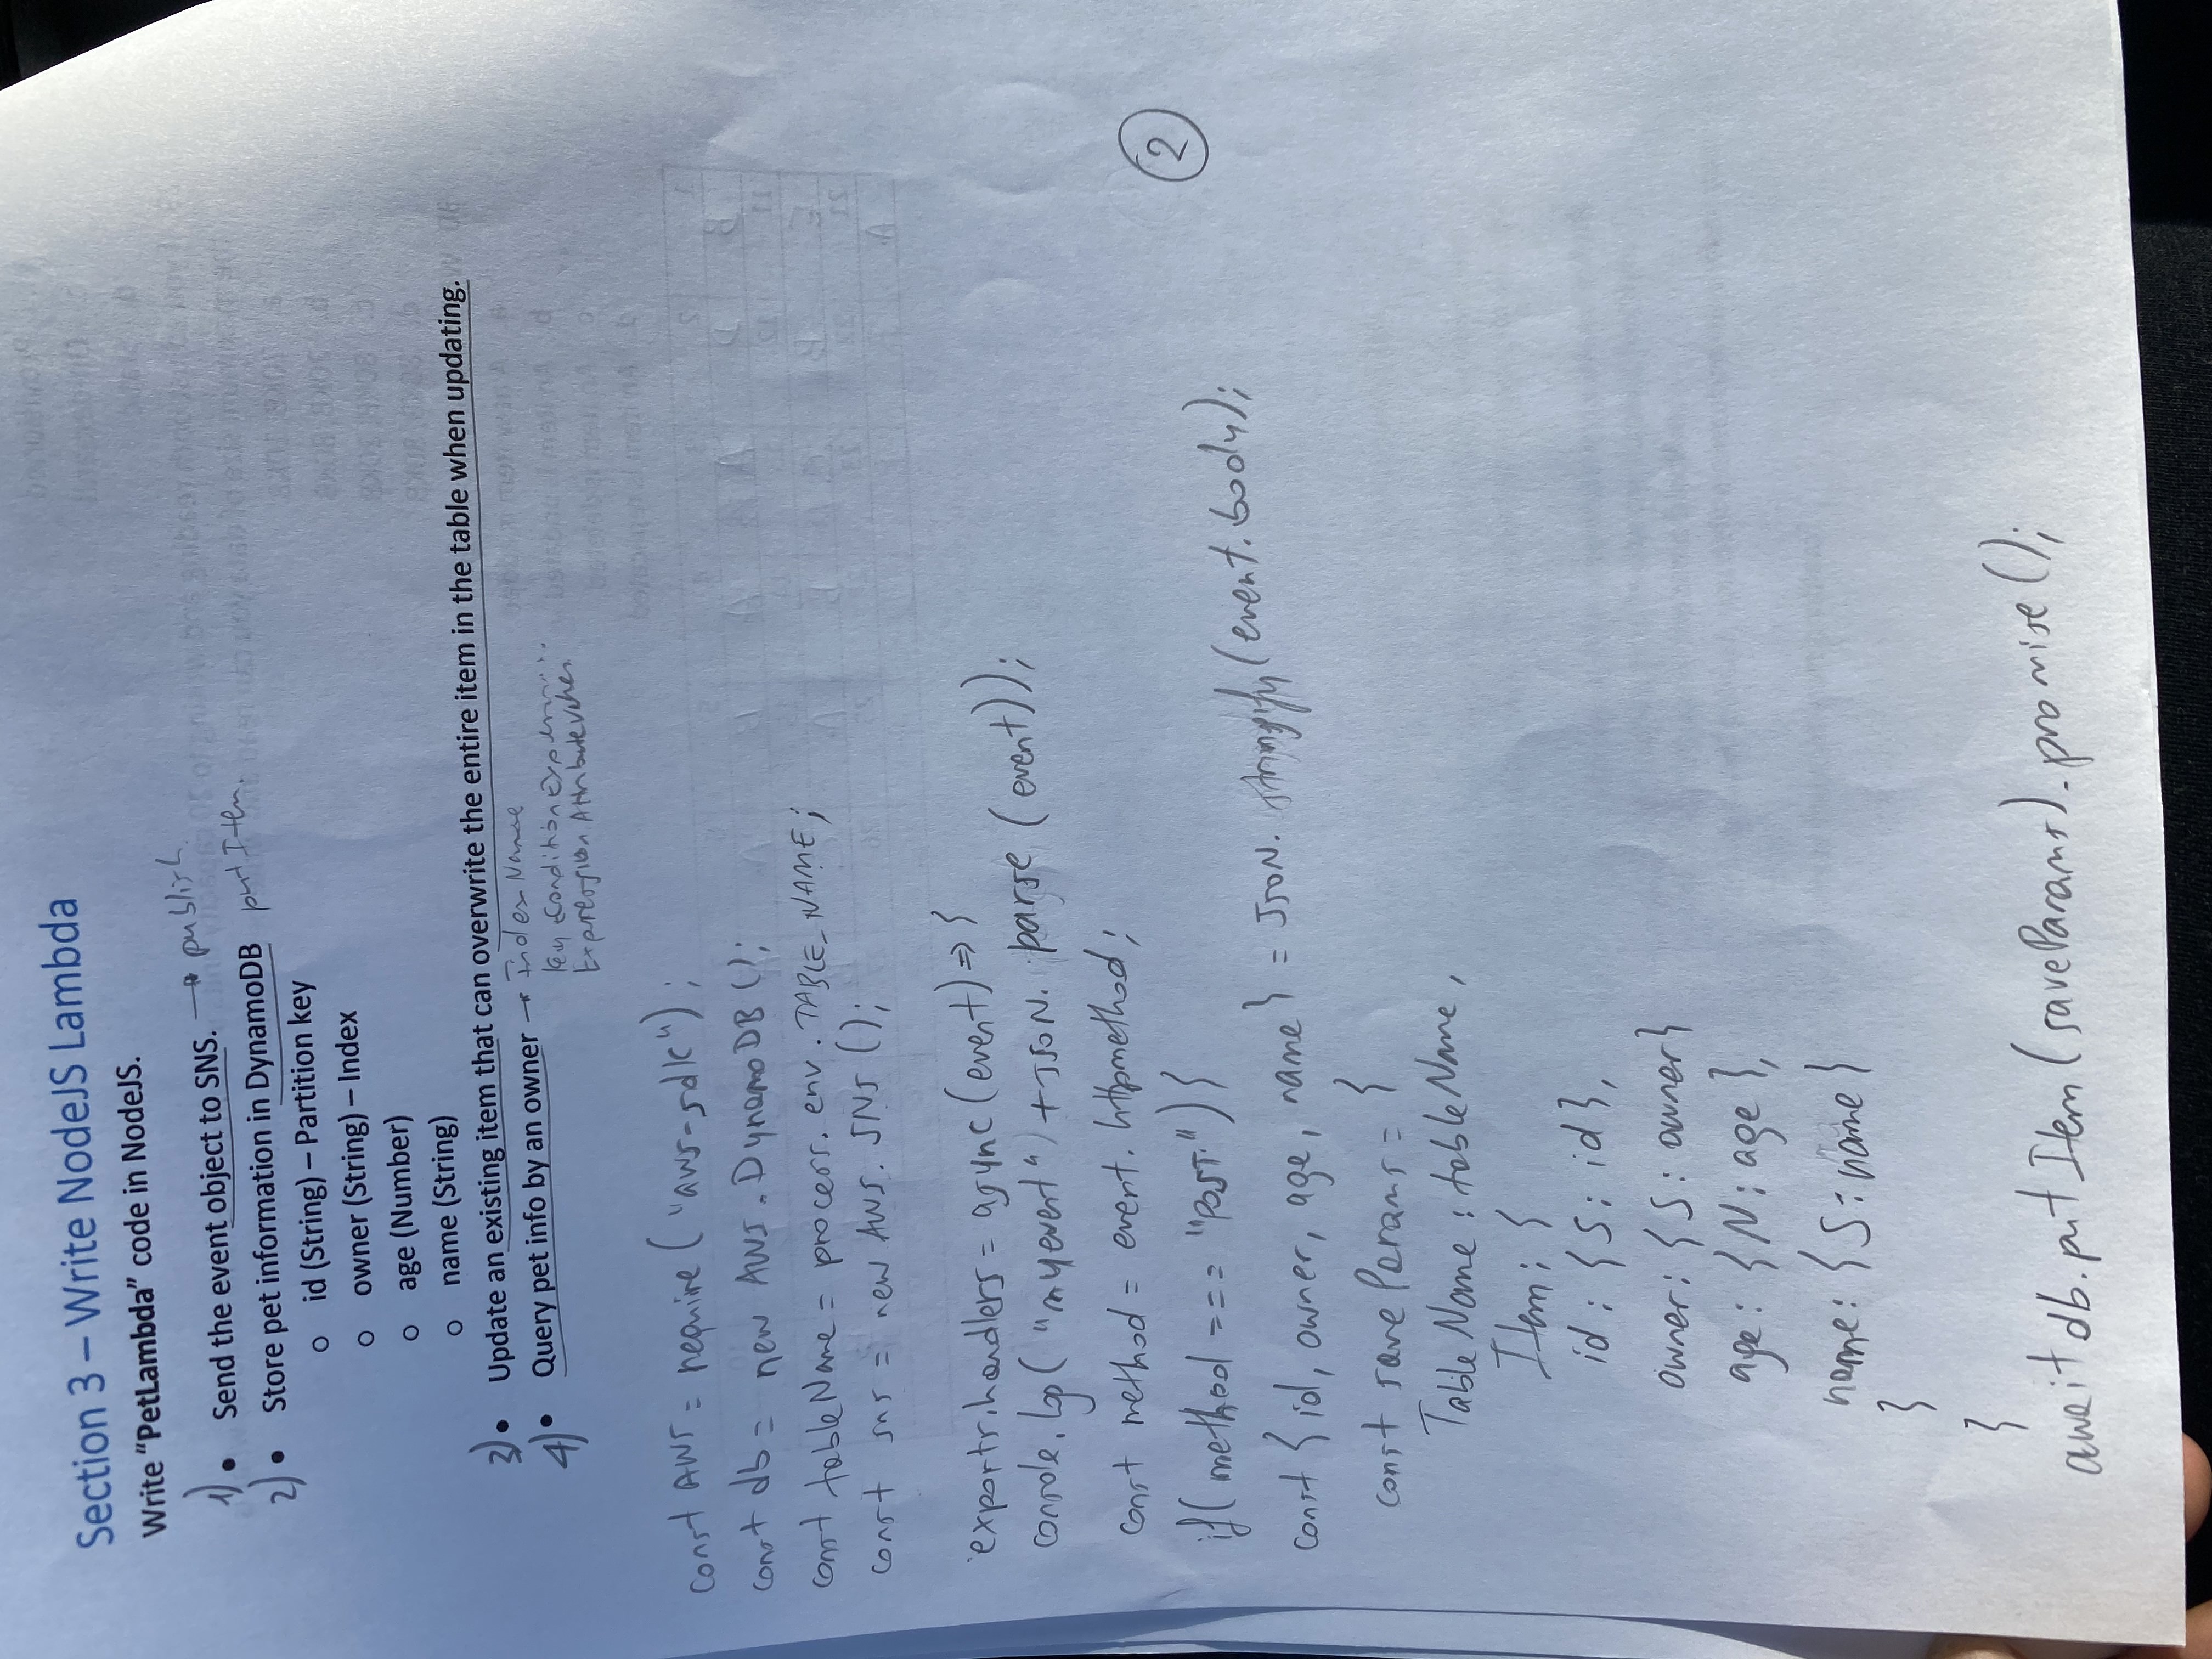 Section 3 – Write NodeJS Lambda
Write “PetLambda” code in NodeJS.
1) • Send the event object to SNS. → publish
2) • Store pet information in DynamoDB put Item.
o id (String) – Partition key
o owner (String) – Index
o age (Number)
o name (String)
3) • Update an existing item that can overwrite the entire item in the table when updating.
4) • Query pet info by an owner → Index Name
Key Condition
Expression Attribute
const AWS = require ("aws-sdk");
const db = new AWS.DynamoDB ();
const tableName = process.env.TABLE_NAME;
const sns = new AWS.SNS ();
exports.handlers = async (event) => {
console.log ("myevent") + JSON.parse (event));
const method = event.httpmethod;
if( method === "POST") {
2
const { id, owner, age, name } = JSON.stringify (event.body);
const saveParams = {
TableName : tableName,
Item: {
id : {S: id},
owner: {S: owner}
age: {N: age},
name: {S: name}
}
}
await db.put Item (saveParams).promise ();